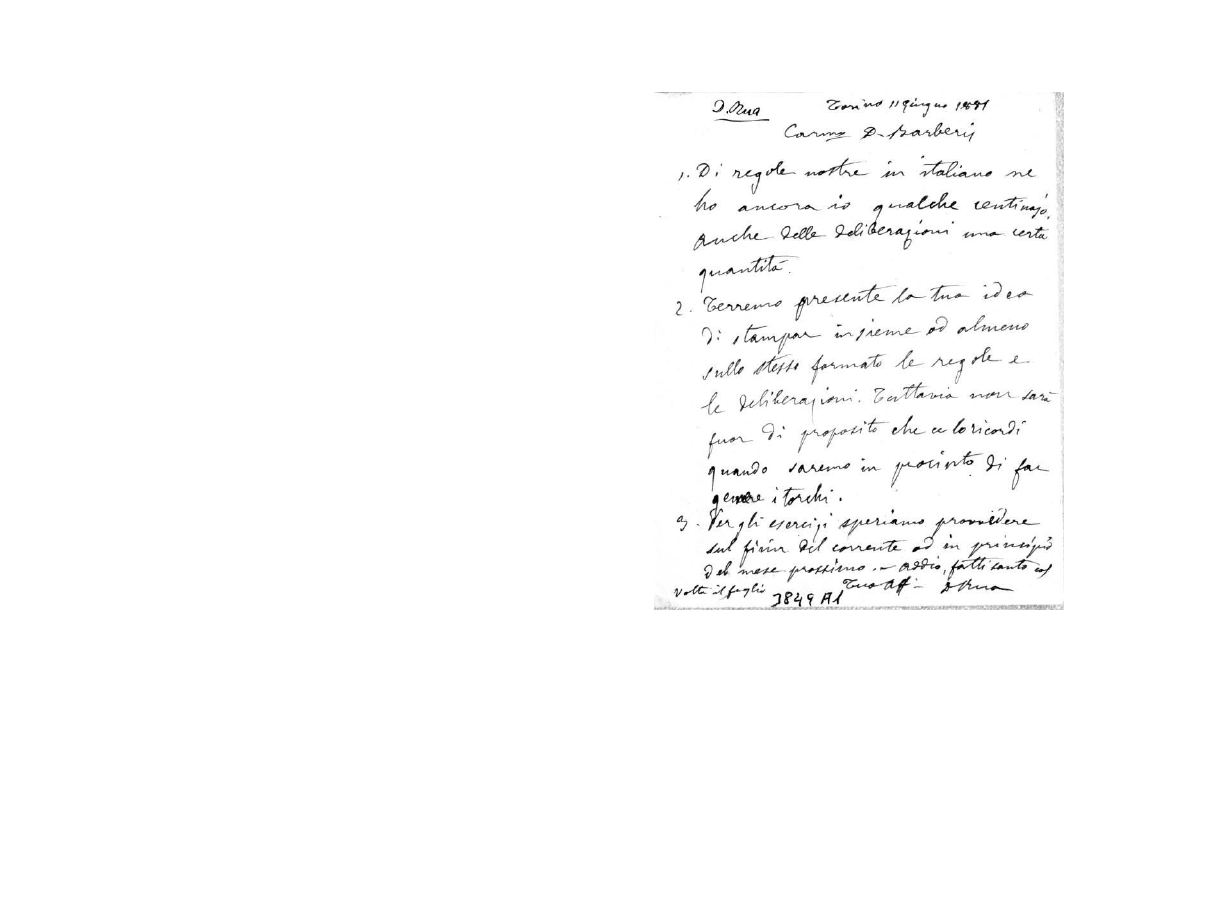 D. Rua Torino 11 Giugno 1881
Carmo D. Barberis
1. Di regole nostre in italiano ne
ho ancora io qualche centinajo,
Anche delle deliberazioni una certa
quantità.
2. Terremo presente la tua idea
di stampar insieme od almeno
sullo stesso formato le regole e
le deliberazioni. Tuttavia non sarà
fuor di proposito che ce lo ricordi
quando saremo in procinto di far
gemere i torchi.
3. Per gli esercizi speriamo provvedere
sul finir del corrente od in principio
del mese prossimo. - Addio, fatti santo col
Volta il foglio Tuo aff. D Rua
3849 A1